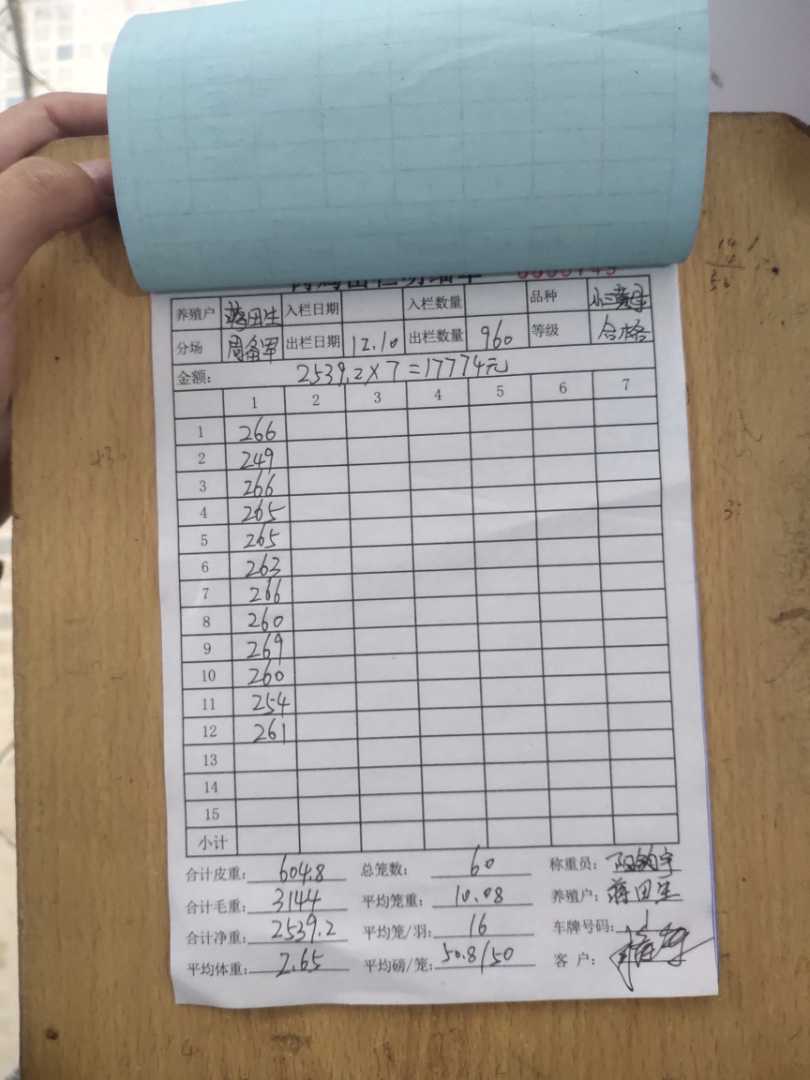 养殖户 蒋田生 入栏日期 入栏数量 品种
分场 周备军 出栏日期 12.10 出栏数量 960 等级 合格
金额: 2539.2×7=17774元
1 2 3 4 5 6 7
1 266
2 249
3 266
4 265
5 265
6 263
7 266
8 260
9 269
10 260
11 254
12 261
13
14
15
小计
合计皮重: 604.8 总笼数: 60 称重员:
合计毛重: 3144 平均笼重: 10.08 养殖户: 蒋田生
合计净重: 2539.2 平均笼/羽: 16 车牌号码:
平均体重: 2.65 平均磅/笼: 50.8/50 客户: